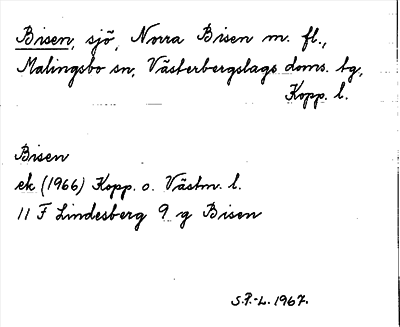 Bisen, sjö, Norra Bisen m. fl.,
Malingsbo sn, Västerbergslags doms. tg,
Kopp. l.
Bisen
ek (1966) Kopp. o. Västm. l.
11 F Lindesberg 9 g Bisen
S.P.-L. 1967.